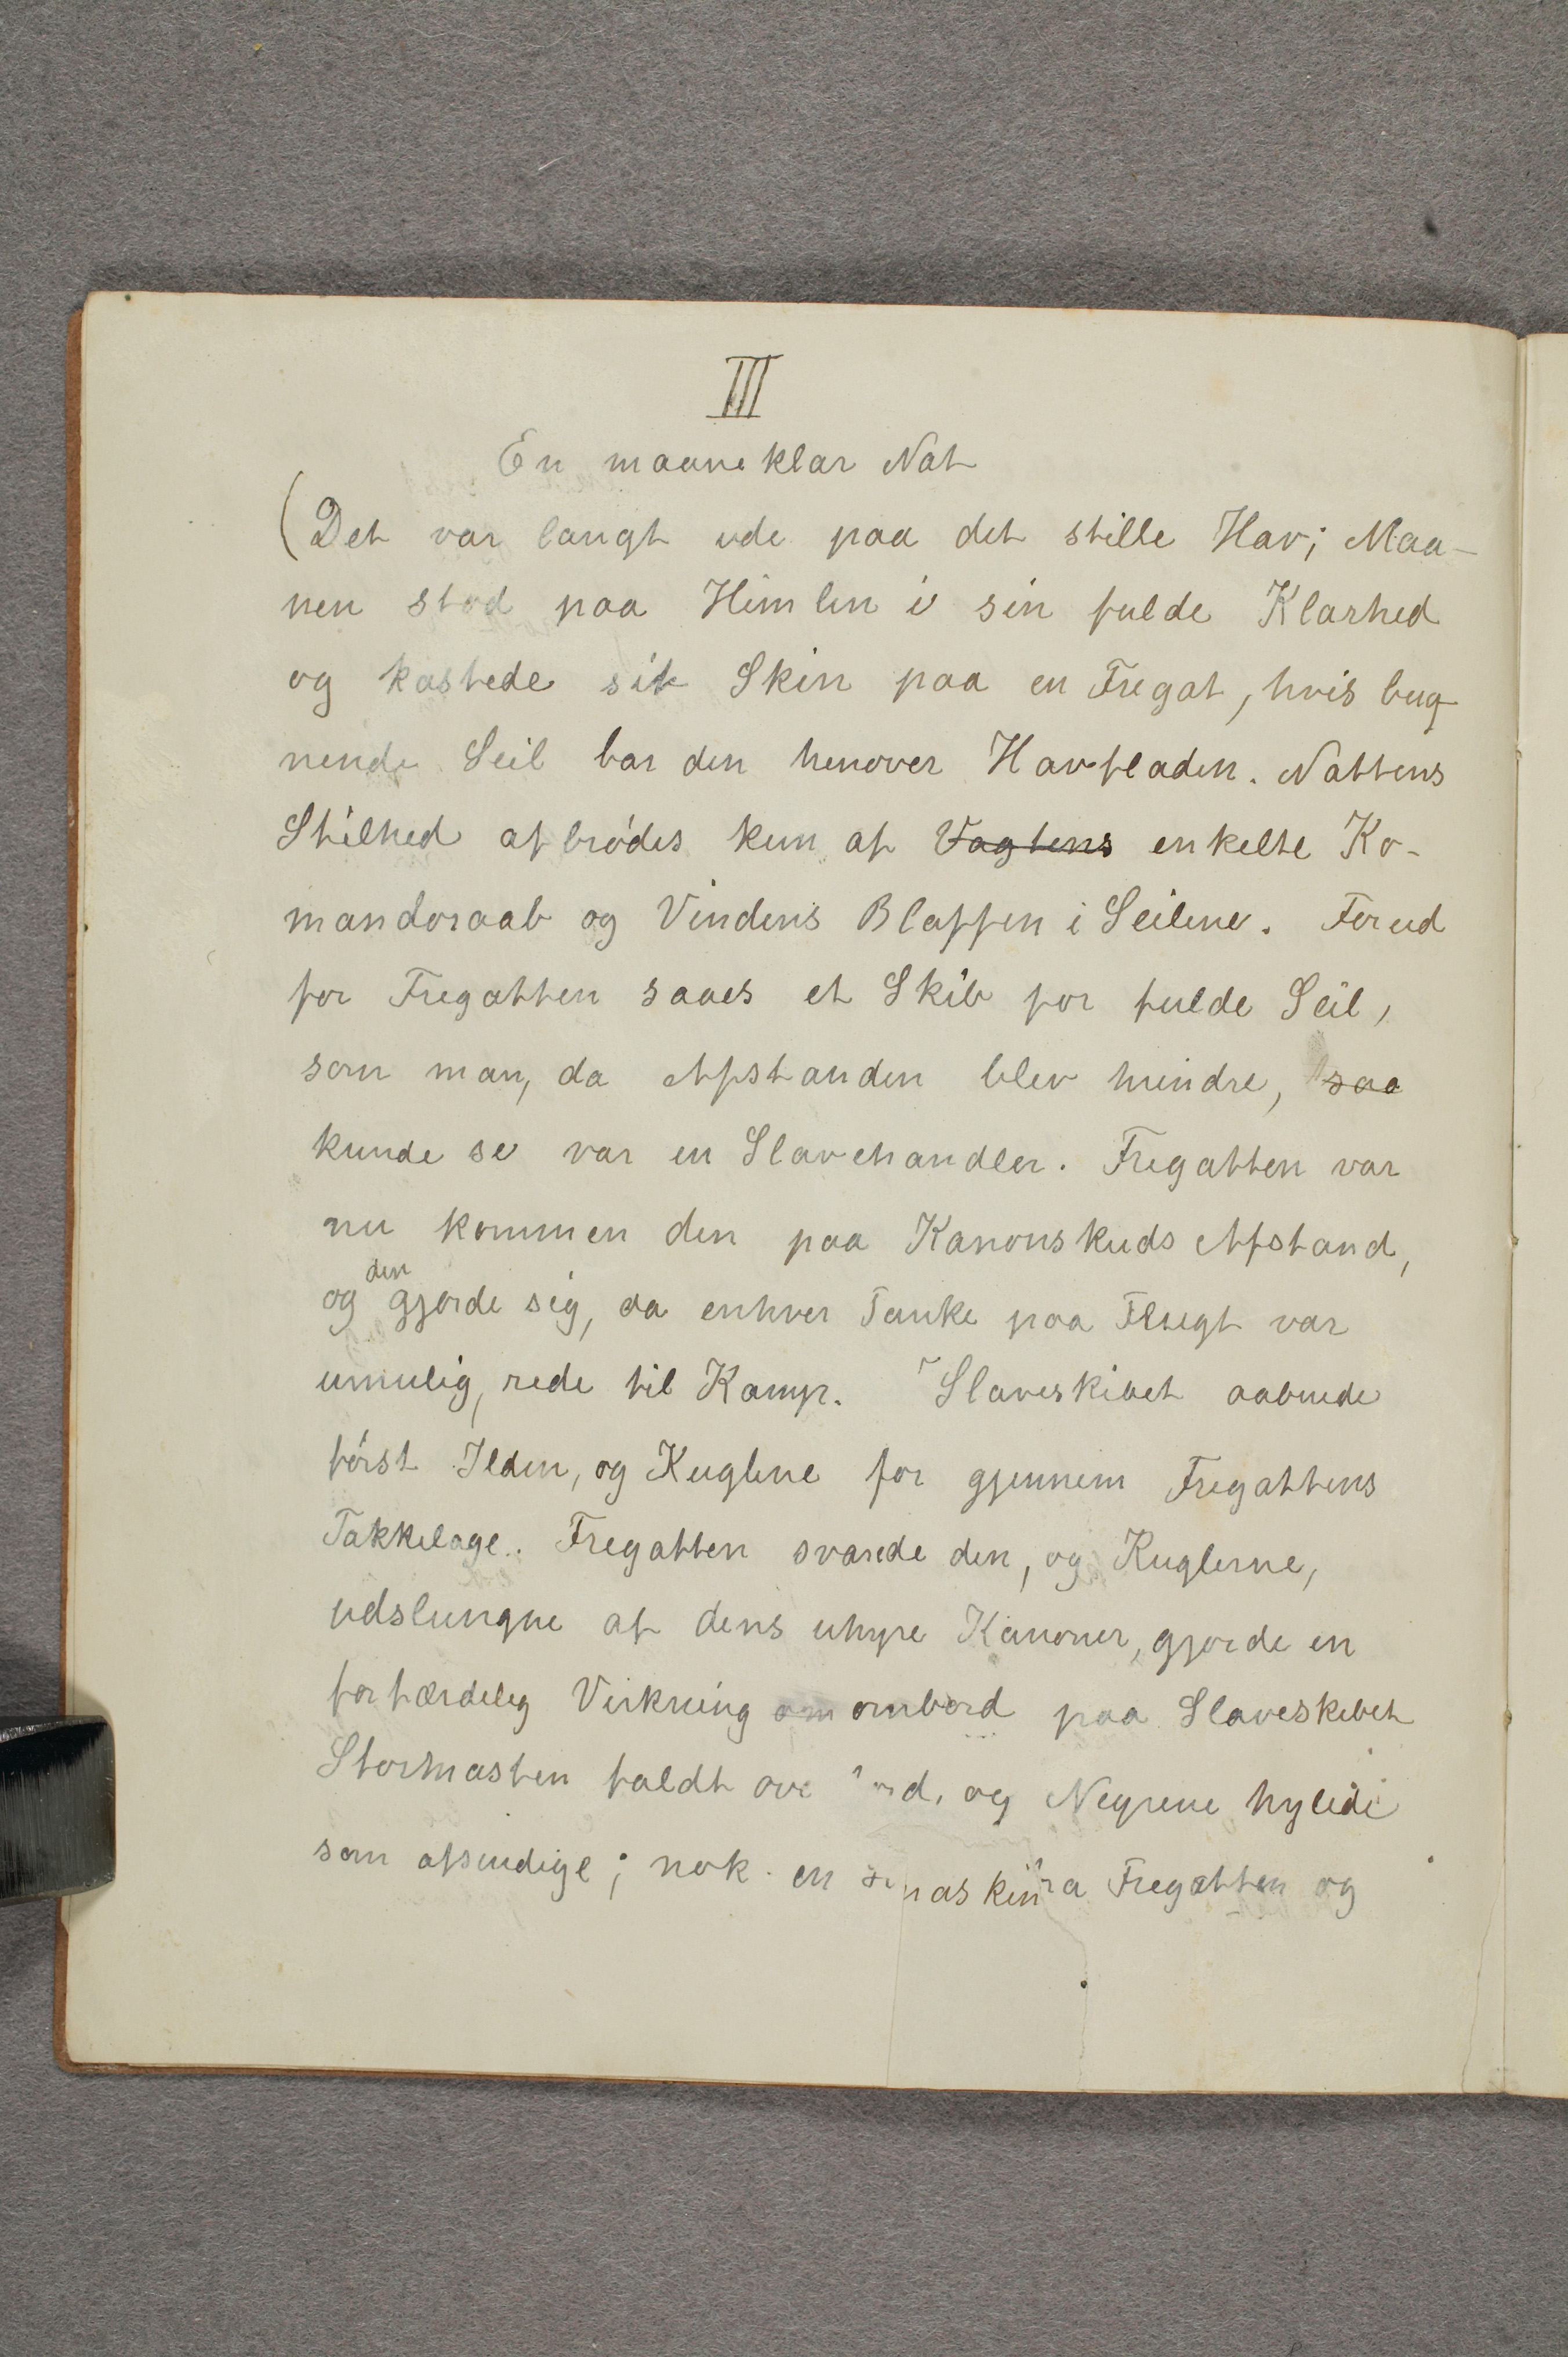 III
En maaneklar Nat
(Det var langt ude paa det stille Hav; Maa-
nen stod paa Himlen i sin fulde Klarhed
og kastede sit Skin paa en Fregat, hvis bug
nende Seil bar den henover Havfladen. Nattens
Stilhed afbrødes kun af Vagtens enkelte Ko-
mandoraab og Vindens Blaffen i Seilene. Forud
for Fregatten saaes et Skib for fulde Seil,
som man, da Afstanden blev mindre, saa
kunde se var en Slavehandler. Fregatten var
nu kommen den paa Kanonskuds Afstand,
og den gjorde sig, da enhver Tanke paa Flugt var
umulig, rede til Kamp. Slaveskibet aabnede
først Ilden, og Kuglene for gjennem Fregattens
Takkelage. Fregatten svarede den, og Kuglerne,
udslungne af dens uhyre Kanoner, gjorde en
forfærdelig Virkning om ombord paa Slaveskibet
Stormasten faldt ove ord, og Negrene hylede
som afsindige; nok en fra Fregatten og